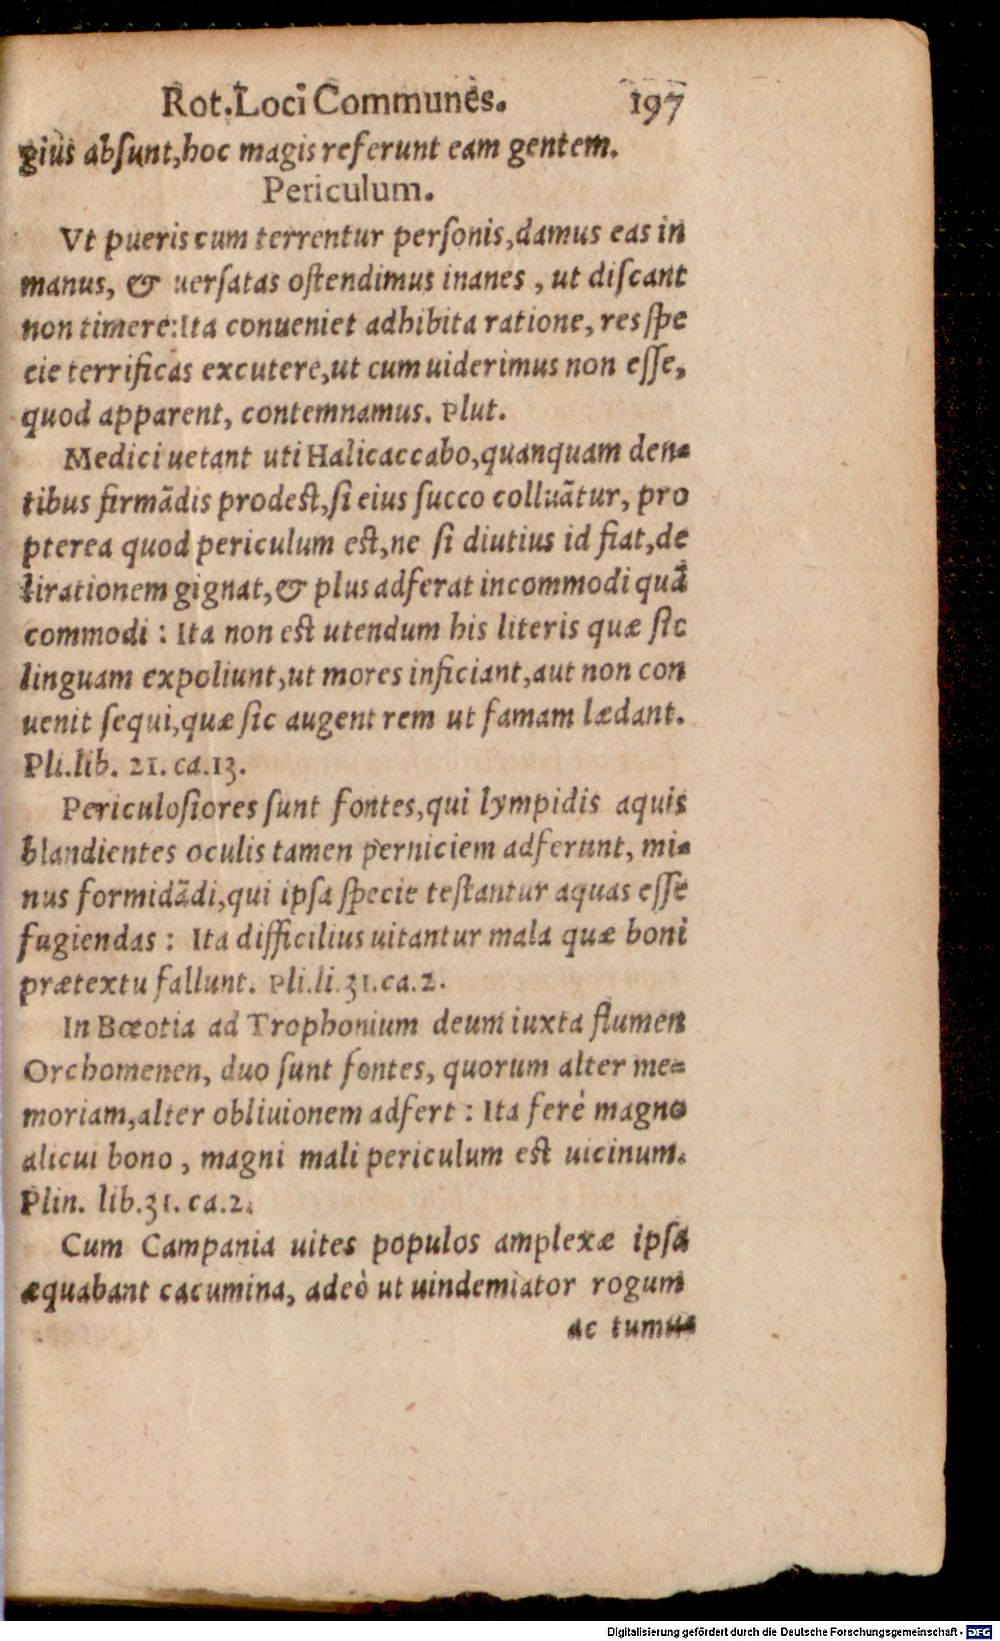 Rot. Loci Communes. 197
gius absunt, hoc magis referunt eam gentem.
Periculum.
Vt pueris cum terrentur personis, damus eas in
manus, & uersatas ostendimus inanes, ut discant
non timere: Ita conueniet adhibita ratione, res spe
cie terrificas excutere, ut cum uiderimus non esse,
quod apparent, contemnamus. Plut.
Medici uetant uti Halicaccabo, quanquam den=
tibus firmãdis prodest, si eius succo colluãtur, pro
pterea quod periculum est, ne si diutius id fiat, de
lirationem gignat, & plus adferat incommodi quã
commodi: Ita non est utendum his literis quæ sic
linguam expoliunt, ut mores inficiant, aut non con
uenit sequi, quæ sic augent rem ut famam lædant.
Pli. lib. 21. ca. 13.
Periculosiores sunt fontes, qui lympidis aquis
blandientes oculis tamen perniciem adferunt, mi=
nus formidãdi, qui ipsa specie testantur aquas esse
fugiendas: Ita difficilius uitantur mala quæ boni
prætextu fallunt. Pli. li. 31. ca. 2.
In Bœotia ad Trophonium deum iuxta flumen
Orchomenen, duo sunt fontes, quorum alter me=
moriam, alter obliuionem adfert: Ita ferè magno
alicui bono, magni mali periculum est uicinum.
Plin. lib. 31. ca. 2.
Cum Campania uites populos amplexæ ipsa
æquabant cacumina, adeò ut uindemiator rogum
ac tumu=
Digitalisierung gefördert durch die Deutsche Forschungsgemeinschaft - DFG